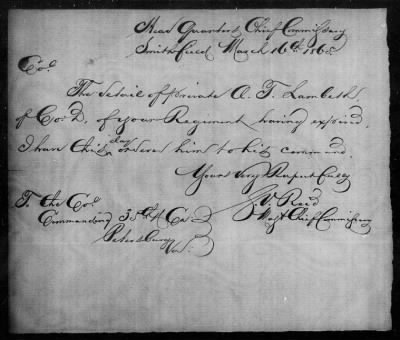 Head Quarters Chief Commissary
Smithfield March 16th 1865
Col.
The detail of private A. T. Lambeth
of Co. D, of your Regiment having expired,
I have this day ordered him to his command.
Yours Very Respectfully
V. Reid
Maj & Chief Commissary
To the Col
Commanding 35th
Petersburg
Va.